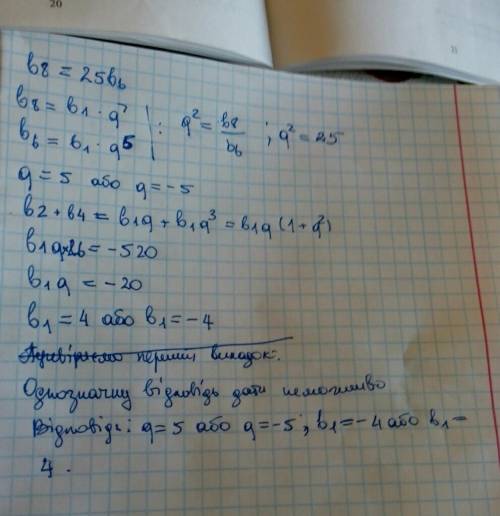 20
b8 = 25b6
b8 = b1 · q⁷
b6 = b1 · q5 | : q² = b8/b6 ; q² = 25
q = 5 або q = -5
b2 + b4 = b1q + b1q³ = b1q (1 + q²)
b1q·26 = -520
b1q = -20
b1 = 4 або b1 = -4
Перевіряємо перший випадок:
Однозначну відповідь дати неможливо
Відповідь: q = 5 або q = -5 ; b1 = -4 або b1 =
4 .